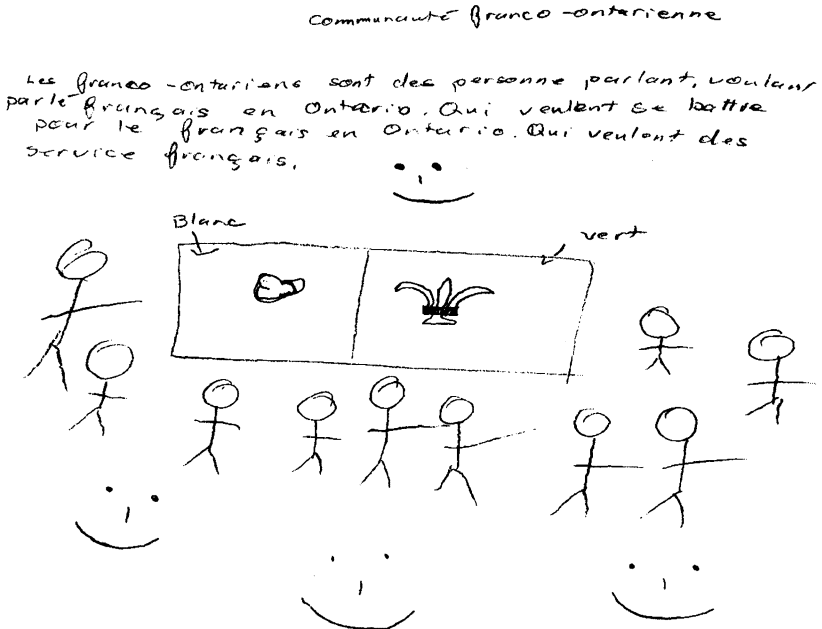 Communauté franco-ontarienne
Les franco-ontariens sont des personne parlant, voulant
parlé français en Ontario. Qui veulent se battre
pour le français en Ontario. Qui veulent des
service français.
Blanc
vert